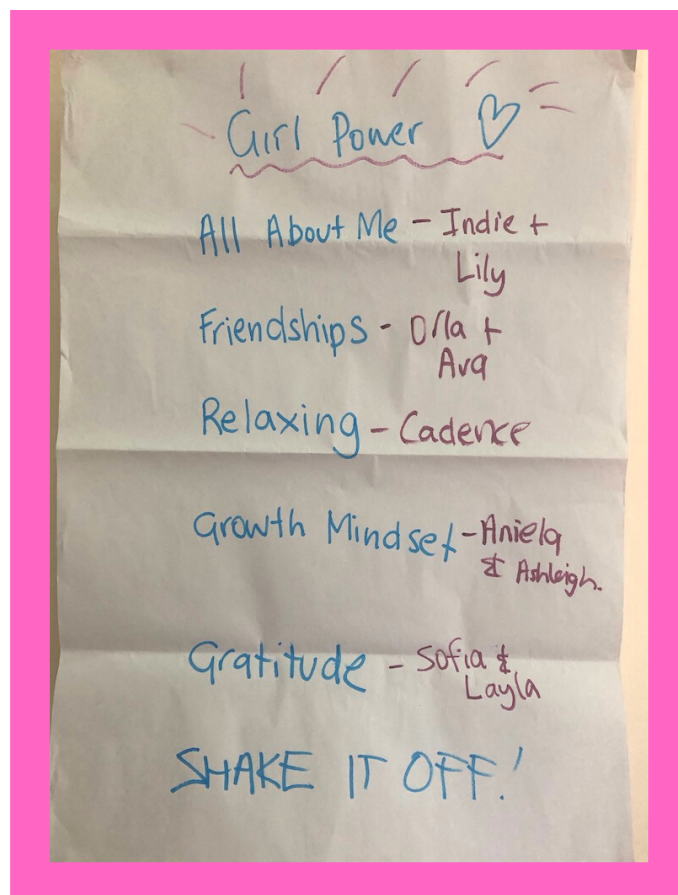 Girl Power
All About Me - Indie +
Lily
Friendships - Orla +
Ava
Relaxing - Cadence
Growth Mindset - Aniela
& Ashleigh.
Gratitude - Sofia &
Layla
SHAKE IT OFF!